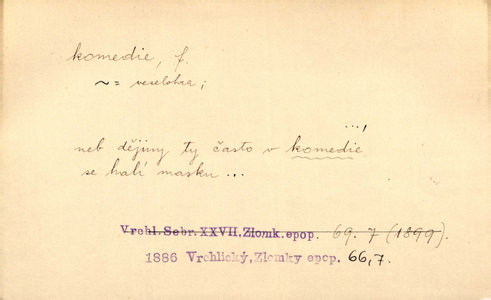 komedie, f.
~ = veselohra;
...,
neb dějiny ty často v komedie
se halí masku ...
Vrchl. Sebr. XXVII, Zlomk. epop. 69. 7 (1899).
1886 Vrchlický, Zlomky epop. 66,7.